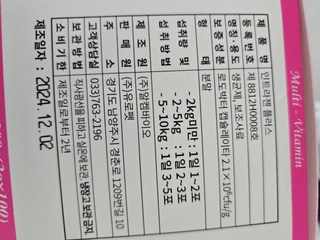 Multi - Vitamin
제 품 명 인트라젠 플러스
등록번호 제 8812H0008호
명칭·용도 생균제, 보조사료
보증성분 로도박터 캡슐레이타 2.1×10⁶cfu/g
형 태 분말
섭취량 및 섭취방법
- 2kg미만 : 1일 1~2포
- 2~5kg : 1일 2~3포
- 5~10kg : 1일 3~5포
제 조 원 (주)알엠바이오
판 매 원 (주)유로펫
주 소 경기도 남양주시 경춘로 1209번길 10
고객상담실 0330)763-2196
보관방법 직사광선을 피하고 실온에 보관, 냉장고 보관 금지.
소비기한 제조일로부터 2년
제조일자 : 2024. 12. 02